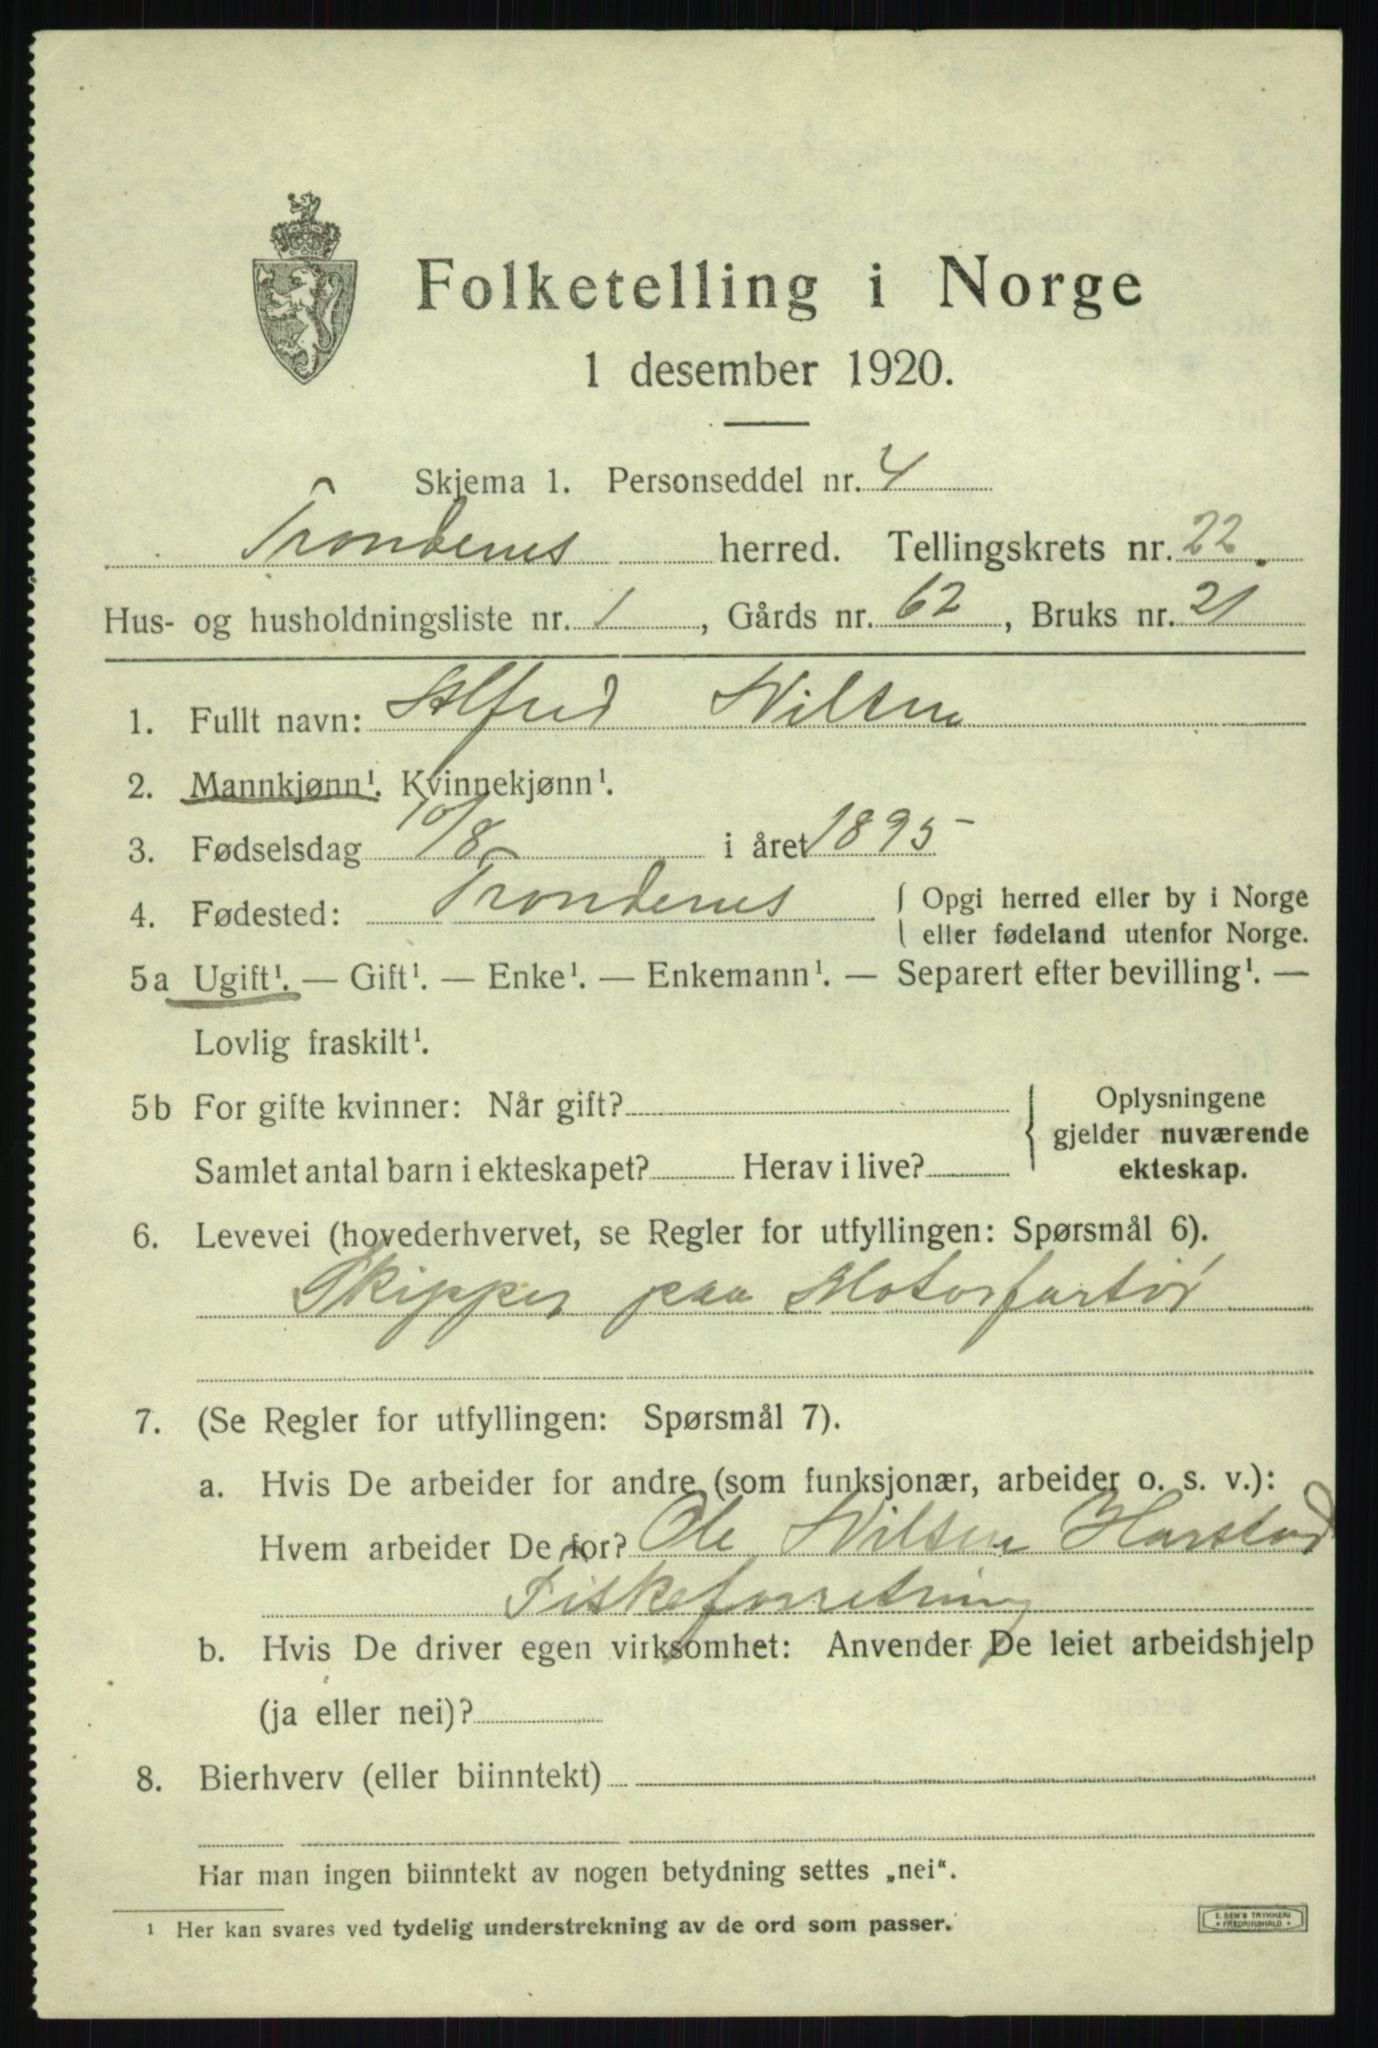 Folketelling i Norge
1 desember 1920.
Skjema 1. Personseddel nr. 4
Trondenes herred. Tellingskrets nr. 22.
Hus- og husholdningsliste nr. 1, Gårds nr. 62, Bruks nr. 21
1. Fullt navn: Alfred Nilsen
2. Mannkjønn¹. Kvinnekjønn¹.
3. Fødselsdag 10/8 i året 1895
4. Fødested: Trondenes { Opgi herred eller by i Norge
eller fødeland utenfor Norge.
5a Ugift¹. — Gift¹. — Enke¹. — Enkemann¹. — Separert efter bevilling¹. —
Lovlig fraskilt¹.
5b For gifte kvinner: Når gift? { Oplysningene
gjelder nuværende
Samlet antal barn i ekteskapet? Herav i live? ekteskap.
6. Levevei (hovederhvervet, se Regler for utfyllingen: Spørsmål 6).
Skipper paa Motorfartøi
7. (Se Regler for utfyllingen: Spørsmål 7).
a. Hvis De arbeider for andre (som funksjonær, arbeider o. s. v.):
Hvem arbeider De for? Ole Nilsen Harstad
Fiskeforretning
b. Hvis De driver egen virksomhet: Anvender De leiet arbeidshjelp
(ja eller nei)?
8. Bierhverv (eller biinntekt)
Har man ingen biinntekt av nogen betydning settes „nei“.
¹ Her kan svares ved tydelig understrekning av de ord som passer.
E. SEM'S TRYKKERI
• FREDRIKSHALD •